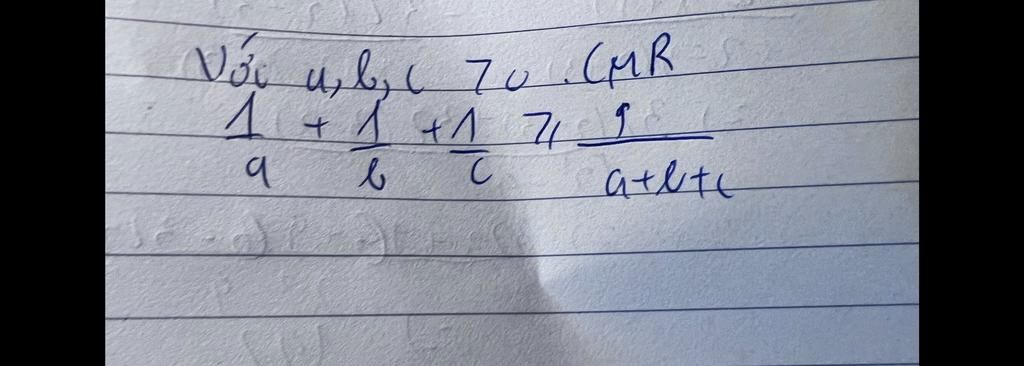 Với a, b, c > 0. CMR
1/a + 1/b + 1/c ≥ 9/a+b+c